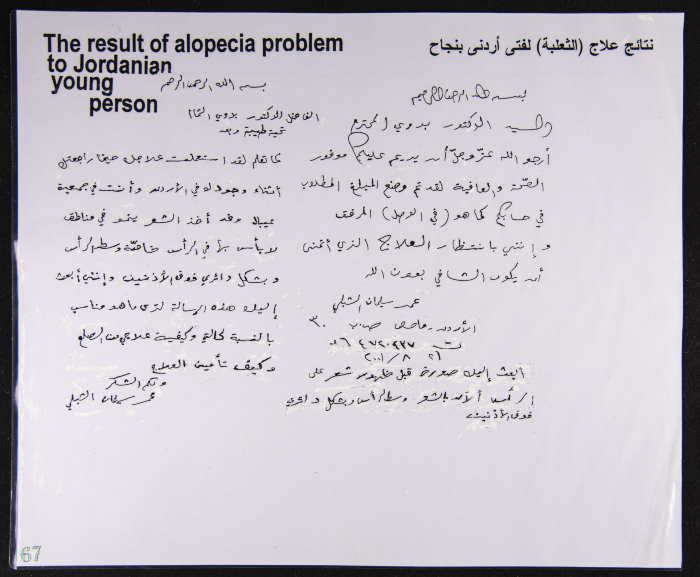 The result of alopecia problem
to Jordanian
young
person
نتائج علاج (الثعلبة) لفتى أردنى بنجاح
بسم الله الرحمن الرحيم
السيد الدكتور بدوي المحترم
أرجو الله عزّ وجلّ أن يديم عليكم موفور
الصحّة والعافية لقد تم وضع المبلغ المطلوب
في حسابكم كما هو (في الوصل) المرفق
وإنني بانتظار العلاج الذي أتمنى
أن يكون الشافي بعون الله
عمر سليمان الشبلي
الأردن - ص.ب
٢٦ / ٨ / ٢٠٠١
أبعث إليك صورة قبل ظهور شعر على
الرأس الآن بالشعر وسط الرأس وبشكل دائري
فوق الأذنين
بسم الله الرحمن الرحيم
الفاضل الدكتور بدوي
تحية طيبة وبعد
كما تعلم لقد استعملت علاجك حينما راجعتك
أثناء وجودك في الأردن وأنت في جمعية
عيبال وقد أخذ الشعر ينمو في مناطق
لا بأس بها في الرأس خاصّة وسط الرأس
وبشكل دائري فوق الأذنين وإنني أبعث
إليك هذه الرسالة لترى ما هو مناسب
بالنسبة لحالتي وكيفية علاجي من الصلع
وكيف تأمين العلاج
ولكم الشكر
عمر سليمان الشبلي
67